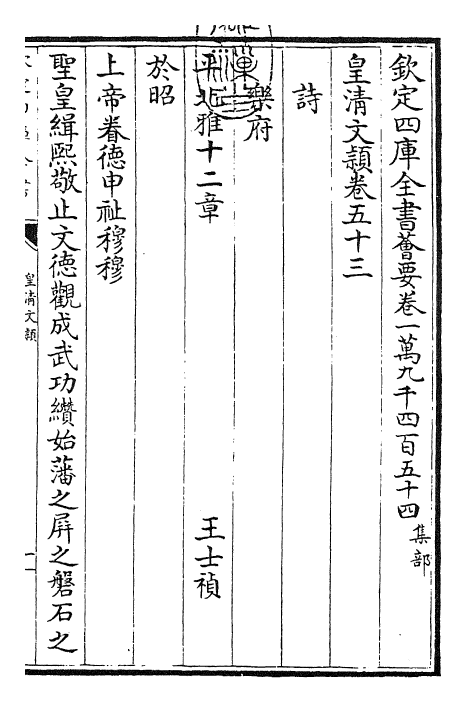 欽定四庫全書薈要卷一萬九千四百五十四
集部
皇清文頴卷五十三
詩
樂府
平北雅十二章
王士禎
於昭
上帝眷德申祉穆穆
聖皇緝熙敬止文德觀成武功纘始藩之屛之磐石之
皇清文頴